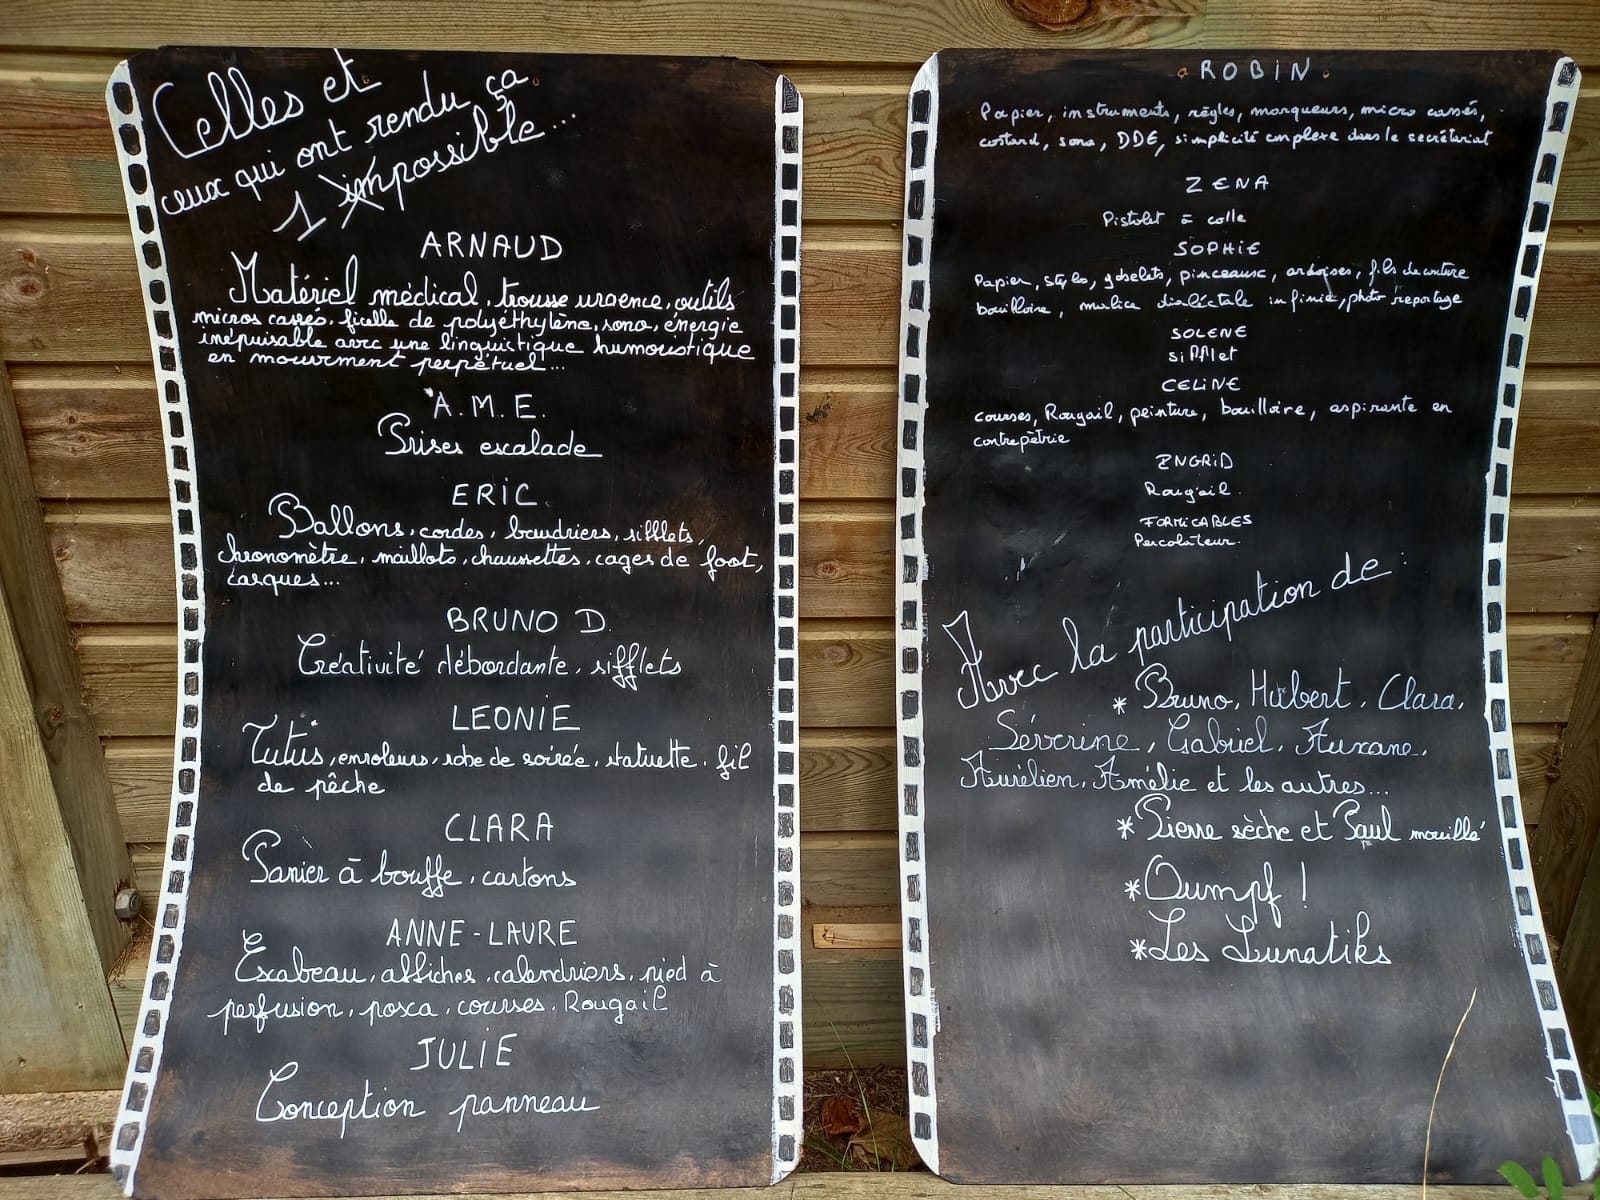 Celles et
ceux qui ont rendu ça
1 impossible...
ARNAUD
Matériel médical, trousse urgence, outils
micros cassés, ficelle de polyéthylène, sono, énergie
inépuisable avec une linguistique humouristique
en mouvement perpétuel...
A.M.E.
Prises escalade
ERIC
Ballons, cordes, baudriers, sifflets,
chronomètre, maillots, chaussettes, cages de foot,
casques...
BRUNO D.
Créativité débordante, sifflets
LEONIE
Tutus, enroleurs, robe de soirée, statuette, fil
de pêche
CLARA
Panier à bouffe, cartons
ANNE-LAURE
Escabeau, affiches, calendriers, pied à
perfusion, posca, courses, Rougail
JULIE
Conception panneau
ROBIN
Papier, instruments, règles, marqueurs, micro cassés,
costard, sono, DDE, simplicité complexe dans le secrétariat
ZENA
Pistolet à colle
SOPHIE
Papier, stylo, gobelets, pinceaux, ardoises, fils de couture
bouilloire, malice dialectale infinie, photo reportage
SOLENE
Sifflet
CELINE
courses, Rougail, peinture, bouilloire, aspirante en
contrepètrie
INGRID
Rougail.
FORMICABLES
Percolateur.
Avec la participation de :
* Bruno, Hubert, Clara,
Séverine, Gabriel, Auxane,
Aurélien, Amélie et les autres...
* Pierre sèche et Paul mouillé
* Oumpf !
* Les Lunatiks